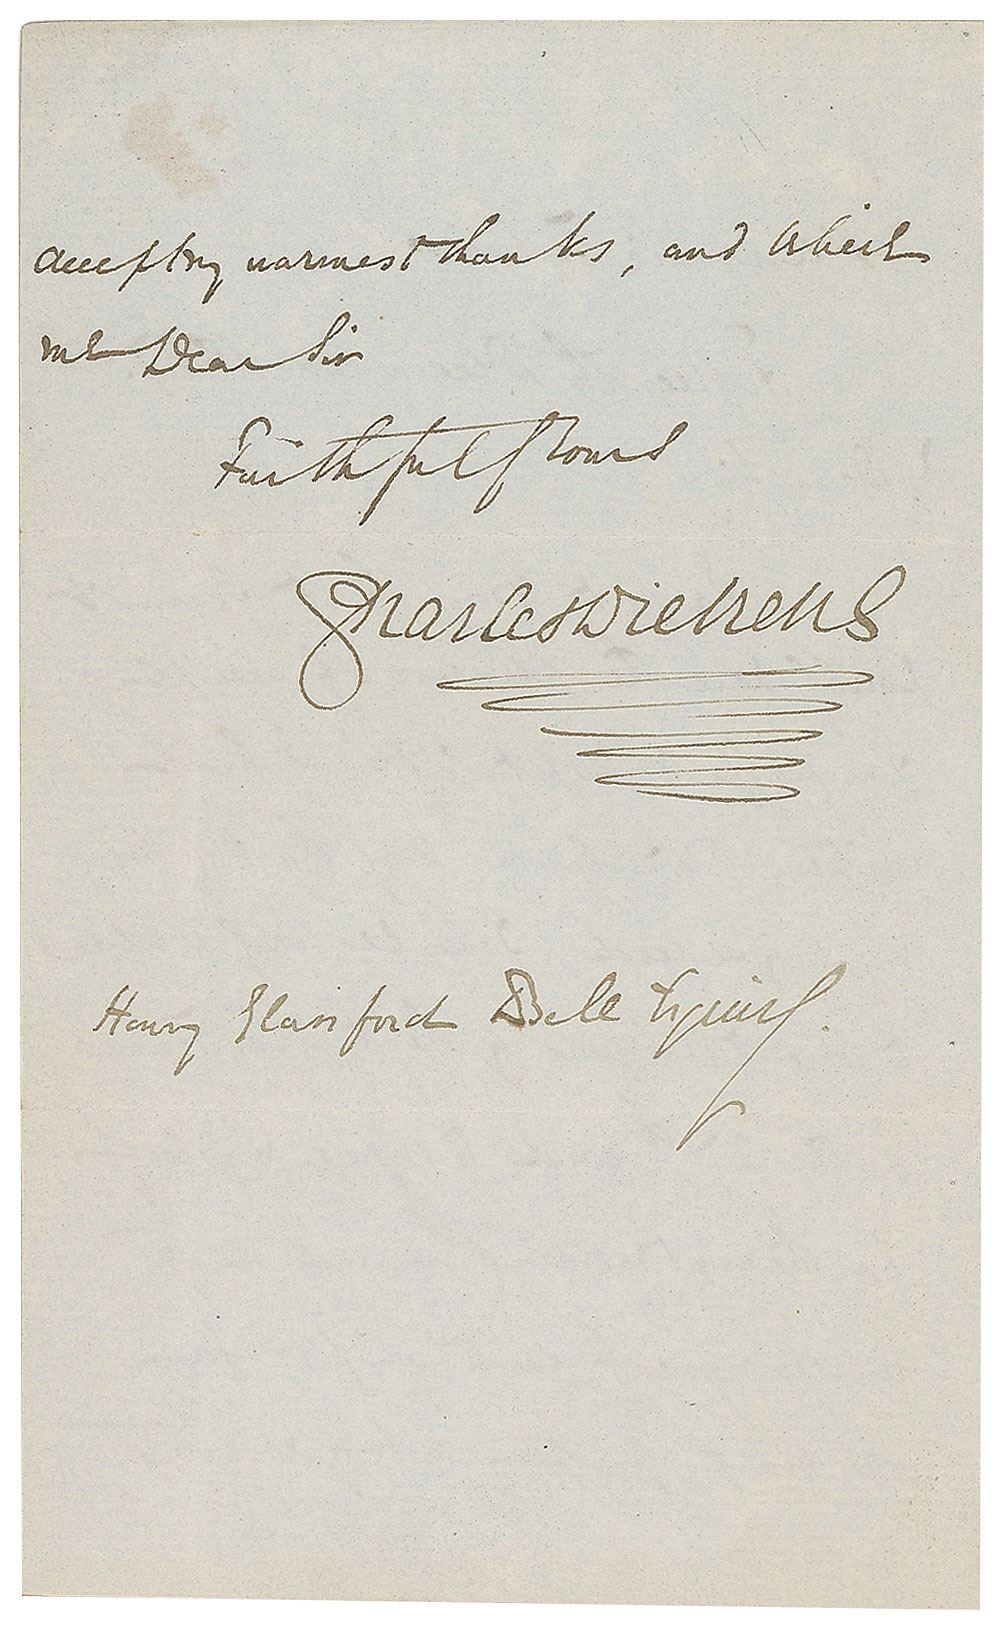 accept my warmest thanks, and believe
me Dear Sir
Faithfully Yours
Charles Dickens
Henry Glassford Bell Esquire.